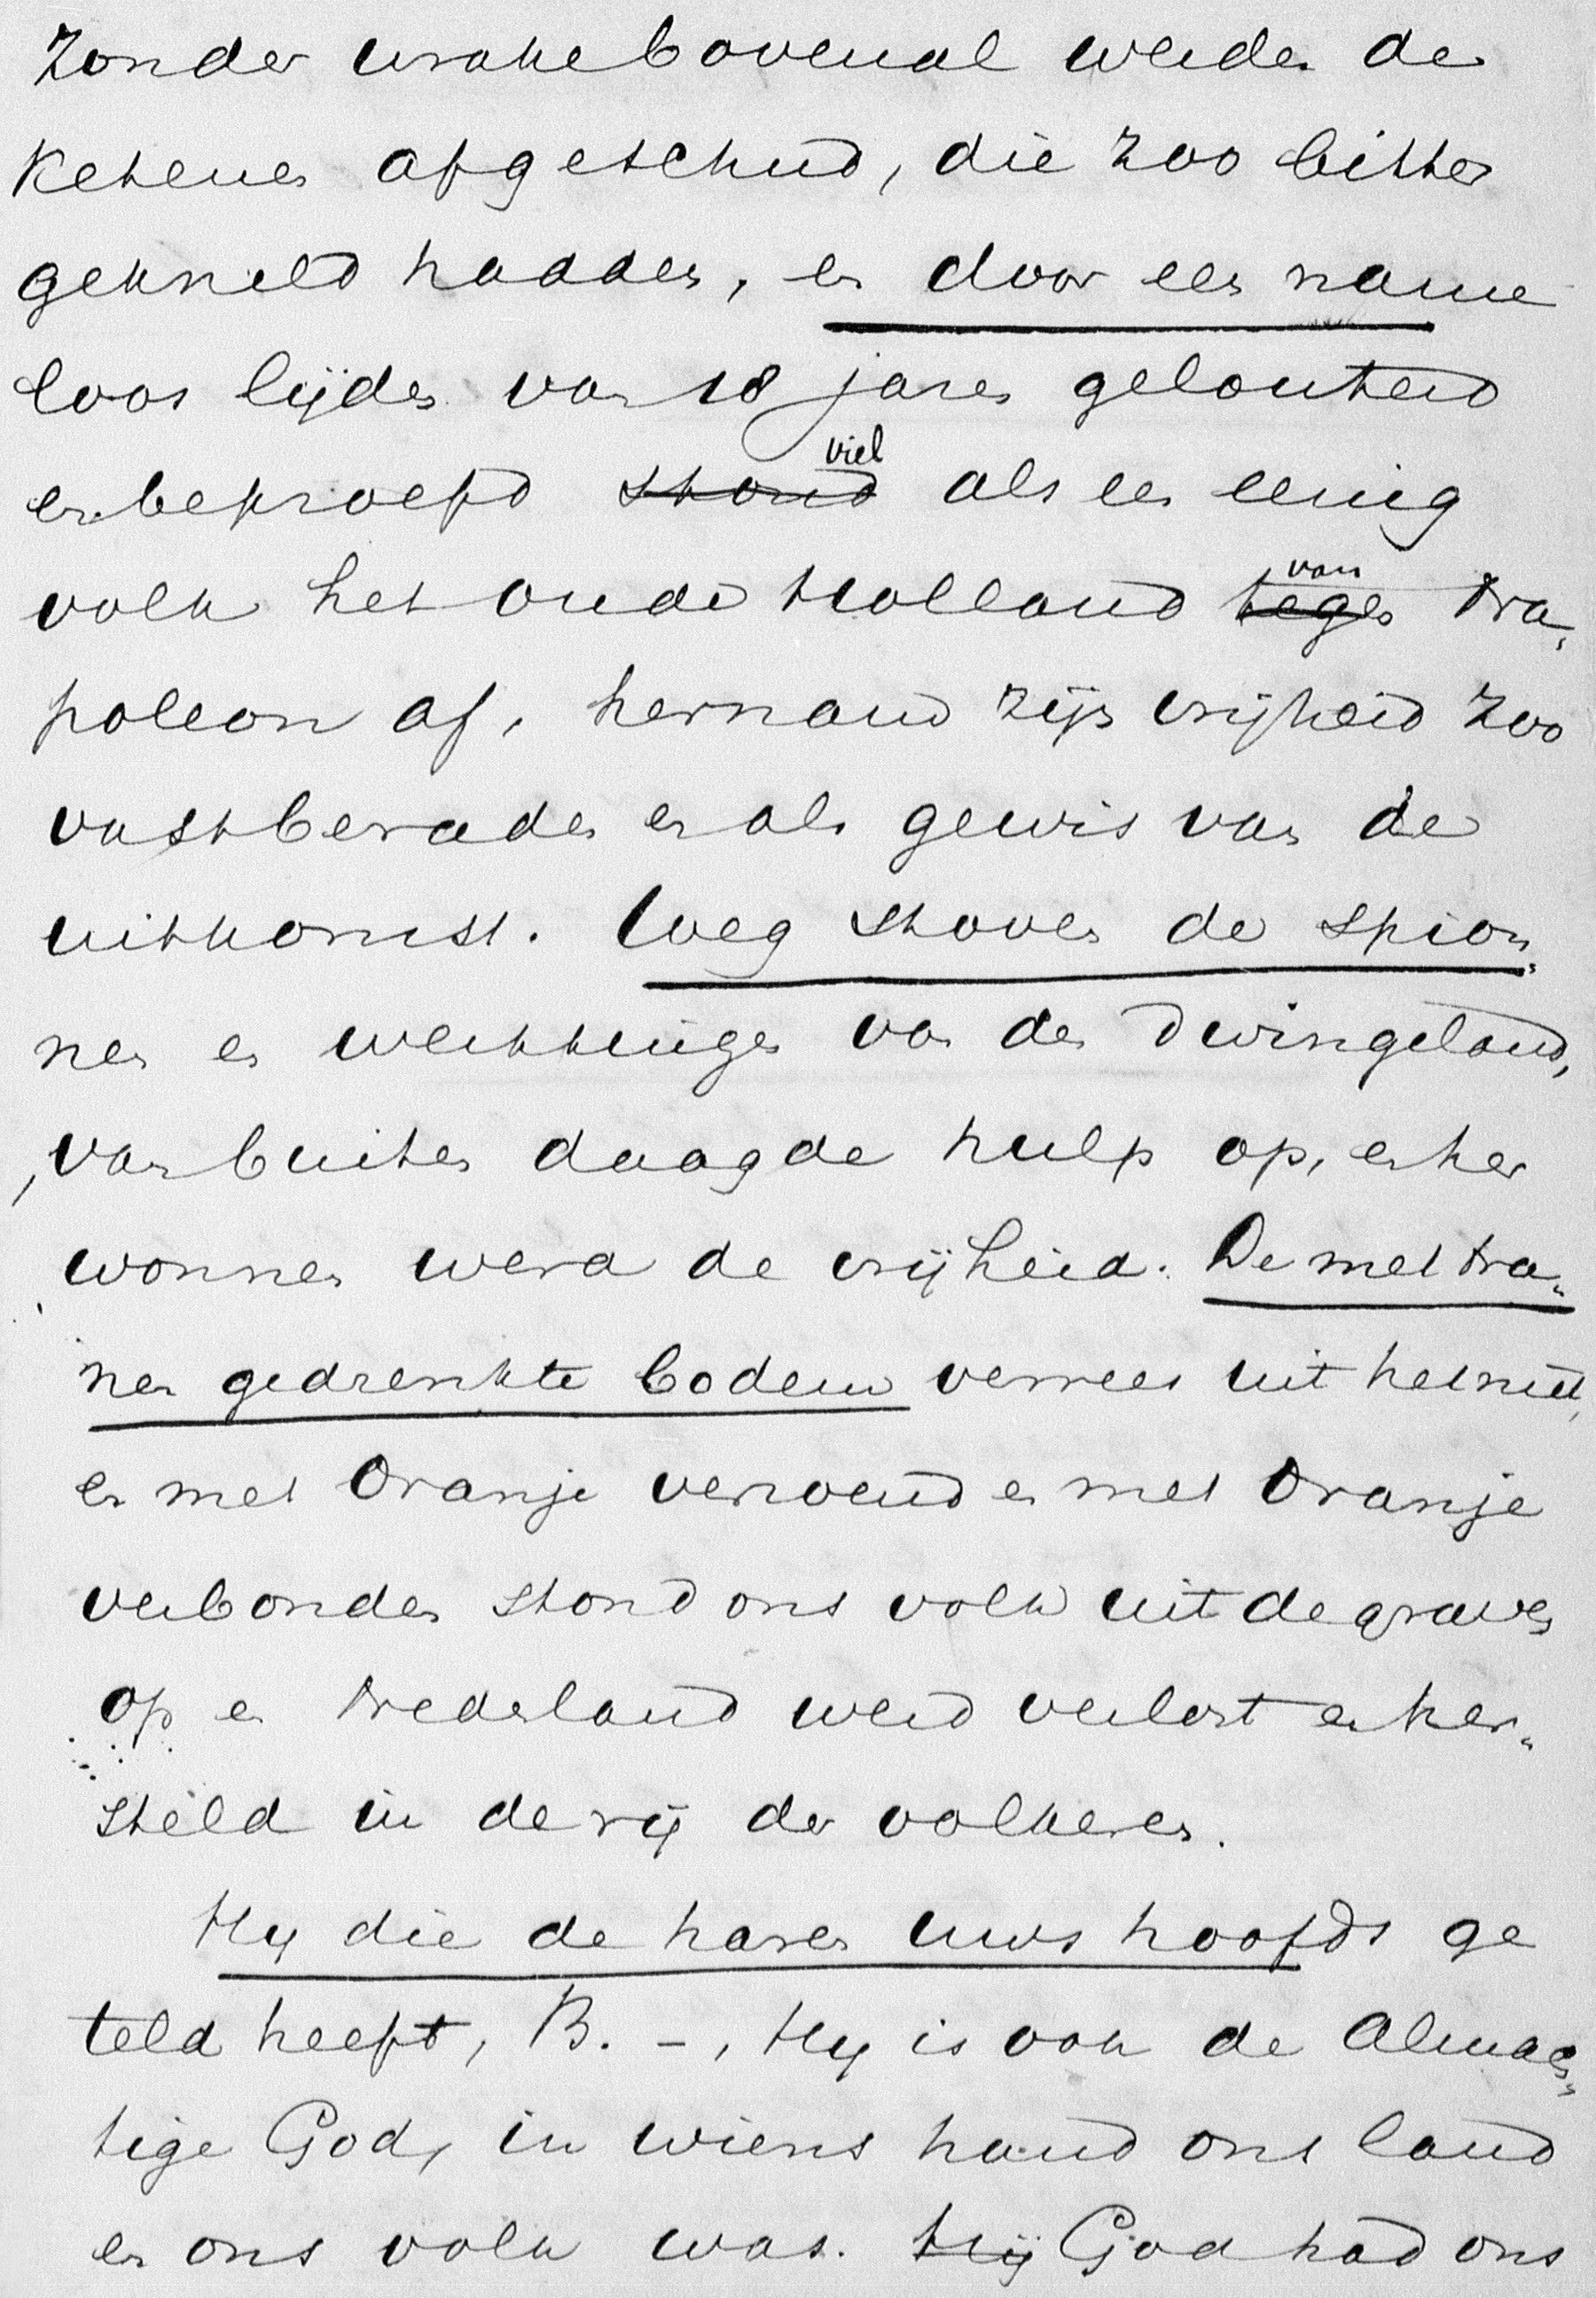 Zonder wrake bovenal werden de
ketenen afgeschud, die zoo bitter
gekneld hadden, en door een name
loos lijden van 18 jaren gelouterd
en beproefd ~~stond~~ viel als een eenig
volk het oude Holland ~~tegen~~ van Na-
poleon af, hernam zijn vrijheid zoo
vastberaden en als gewis van de
uitkomst. Weg stoven de spion-
nen en werktuigen van den dwingeland,
van buiten daagde hulp op, en her
wonnen werd de vrijheid. De met tra-
nen gedrenkte bodem verrees uit het niet,
en met Oranje verzoend en met Oranje
verbonden stond ons volk uit de graven
op en Nederland werd verlost en her-
steld in de rij der volkeren.
Hij die de haren uws hoofds ge
teld heeft, B. -, Hij is ook de Almach-
tige God, in wiens hand ons land
en ons volk was. ~~Hij~~ God had ons